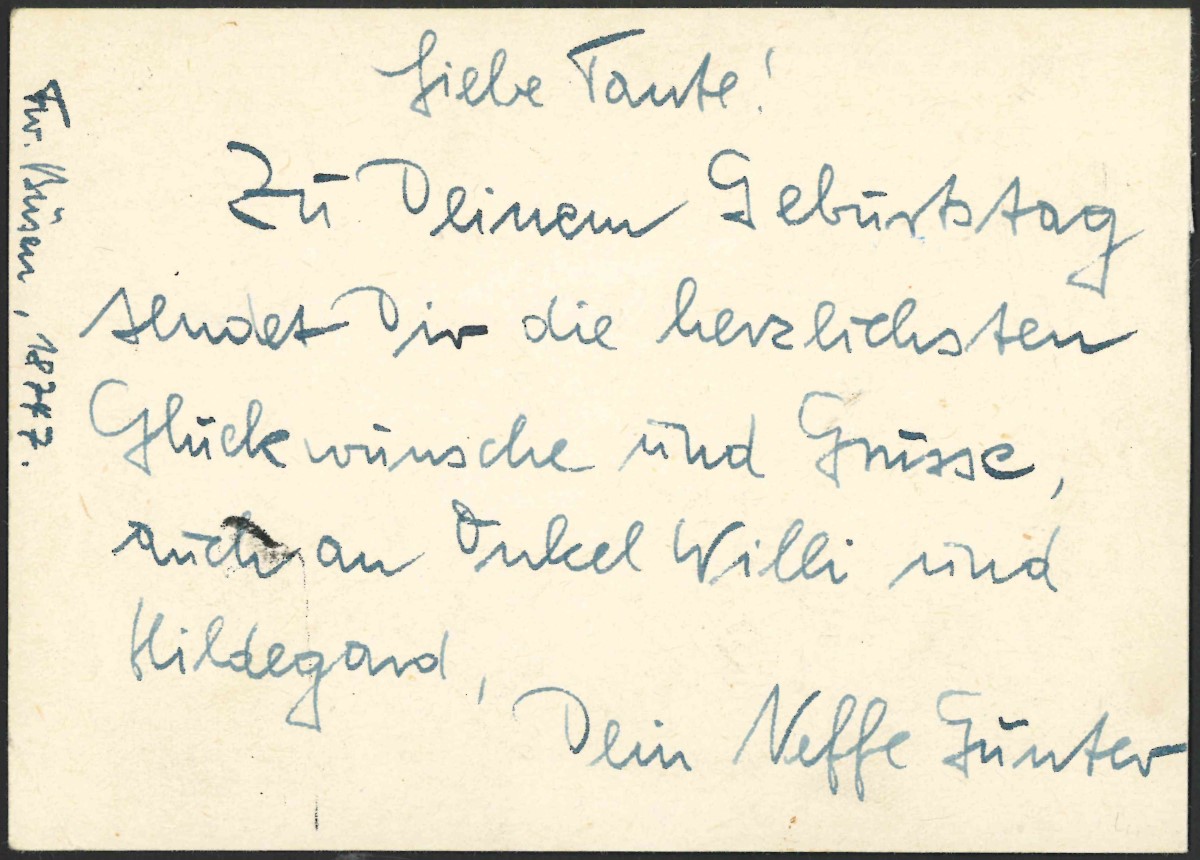 Liebe Tante!
Zu Deinem Geburtstag
sendet Dir die herzlichsten
Glückwünsche und Grüsse,
auch an Onkel Willi und
Hildegard,
Dein Neffe Günter
Büren, 18747.